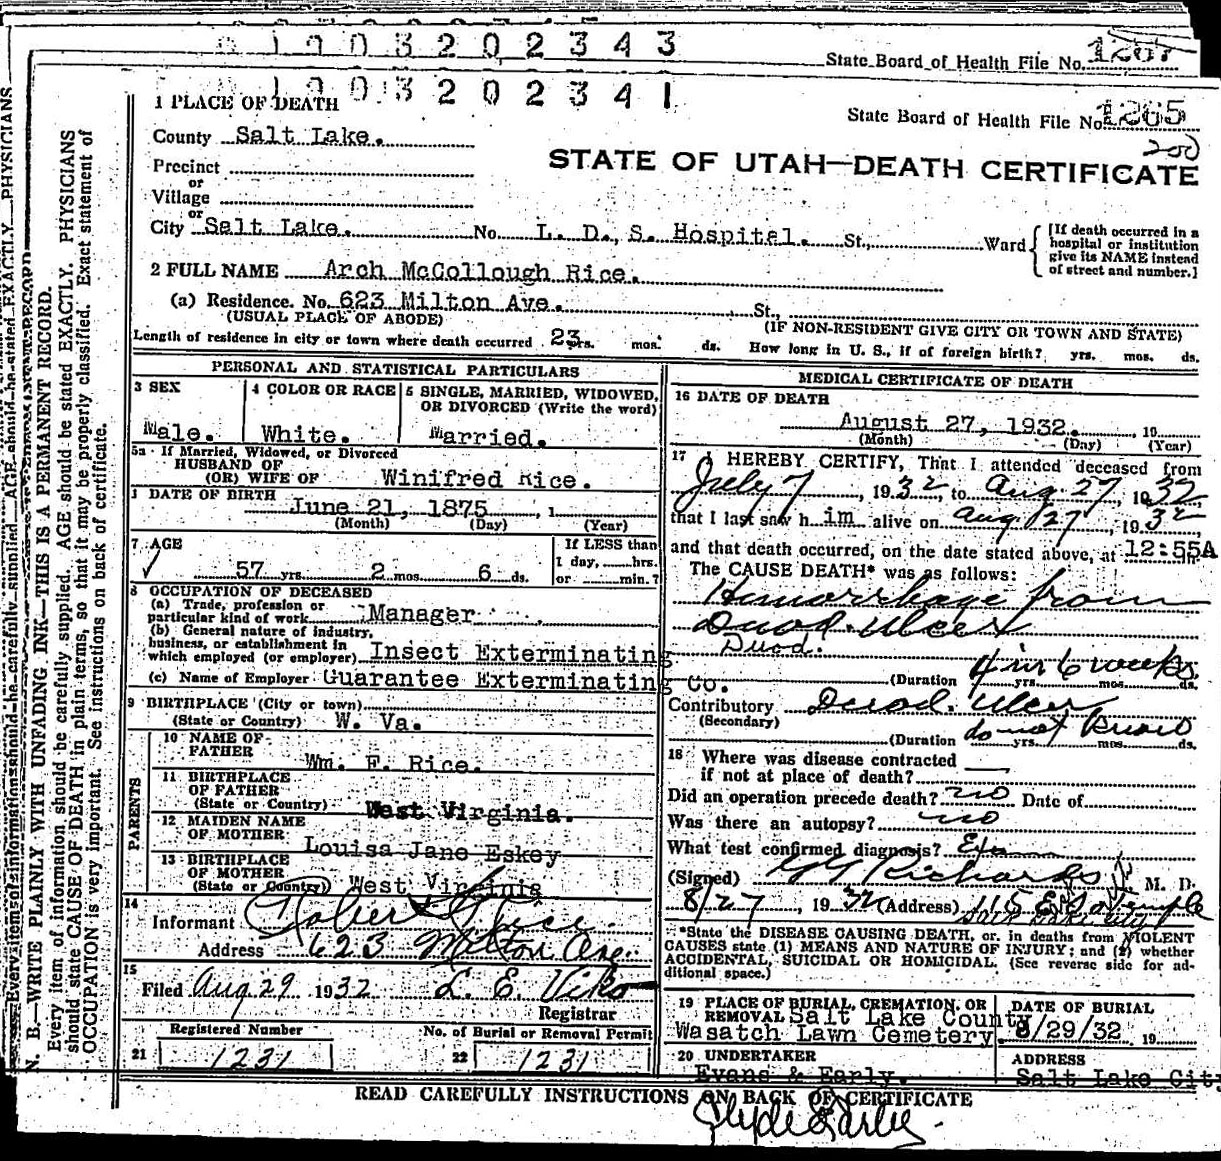 1003202343
State Board of Health File No. 1267
1003202341
1 PLACE OF DEATH
State Board of Health File No. 1265
200
County Salt Lake.
STATE OF UTAH—DEATH CERTIFICATE
Precinct
or
Village
or
City Salt Lake. No. L. D. S. Hospital. St., Ward
[If death occurred in a hospital or institution give its NAME instead of street and number.]
2 FULL NAME Arch McCollough Rice.
(a) Residence. No. 623 Milton Ave. St.,
(USUAL PLACE OF ABODE) (IF NON-RESIDENT GIVE CITY OR TOWN AND STATE)
Length of residence in city or town where death occurred 23 yrs. mos. ds. How long in U. S., if of foreign birth? yrs. mos. ds.
PERSONAL AND STATISTICAL PARTICULARS
3 SEX
Male.
4 COLOR OR RACE
White.
5 SINGLE, MARRIED, WIDOWED, OR DIVORCED (Write the word)
Married.
5a If Married, Widowed, or Divorced
HUSBAND OF
(OR) WIFE OF Winifred Rice.
DATE OF BIRTH
June 21, 1875, 1
(Month) (Day) (Year)
7 AGE
57 yrs. 2 mos. 6 ds.
If LESS than
1 day, hrs.
or min.?
8 OCCUPATION OF DECEASED
(a) Trade, profession or
particular kind of work Manager
(b) General nature of industry,
business, or establishment in
which employed (or employer) Insect Exterminating
(c) Name of Employer Guarantee Exterminating Co.
9 BIRTHPLACE (City or town)
(State or Country) W. Va.
PARENTS
10 NAME OF
FATHER Wm. F. Rice.
11 BIRTHPLACE
OF FATHER
(State or Country) West Virginia.
12 MAIDEN NAME
OF MOTHER Louisa Jane Eskey
13 BIRTHPLACE
OF MOTHER
(State or Country) West Virginia
14
Informant Robert Rice
Address 623 Milton Ave.
15
Filed Aug 29 1932 L. E. Viko
Registrar
Registered Number
21 1231
No. of Burial or Removal Permit
22 1231
MEDICAL CERTIFICATE OF DEATH
16 DATE OF DEATH
August 27, 1932. 19
(Month) (Day) (Year)
17 I HEREBY CERTIFY, That I attended deceased from
July 7, 1932, to Aug 27 1932
that I last saw him alive on Aug. 27, 1932
and that death occurred, on the date stated above, at 12:55A m.
The CAUSE DEATH* was as follows:
Hemorrhage from
Duod. Ulcer
Duod.
(Duration 4 in 6 weeks yrs. mos. ds.
Contributory Duod. Ulcer
(Secondary)
(Duration do not know yrs. mos. ds.
18 Where was disease contracted
if not at place of death?
Did an operation precede death? no Date of
Was there an autopsy? no
What test confirmed diagnosis? Exam
(Signed) G G Richards M. D.
8/27, 1932 (Address) 115 E So Temple
Salt Lake City
*State the DISEASE CAUSING DEATH, or in deaths from VIOLENT
CAUSES state (1) MEANS AND NATURE OF INJURY; and (2) whether
ACCIDENTAL, SUICIDAL OR HOMICIDAL. (See reverse side for ad-
ditional space.)
19 PLACE OF BURIAL, CREMATION, OR
REMOVAL Salt Lake County
Wasatch Lawn Cemetery.
DATE OF BURIAL
8/29/32. 19
20 UNDERTAKER
Evans & Early.
ADDRESS
Salt Lake Cit
READ CAREFULLY INSTRUCTIONS ON BACK OF CERTIFICATE
Clyde Early
N. B.—WRITE PLAINLY WITH UNFADING INK—THIS IS A PERMANENT RECORD.
Every item of information should be carefully supplied. AGE should be stated EXACTLY. PHYSICIANS
should state CAUSE OF DEATH in plain terms, so that it may be properly classified. Exact statement of
OCCUPATION is very important. See instructions on back of certificate.